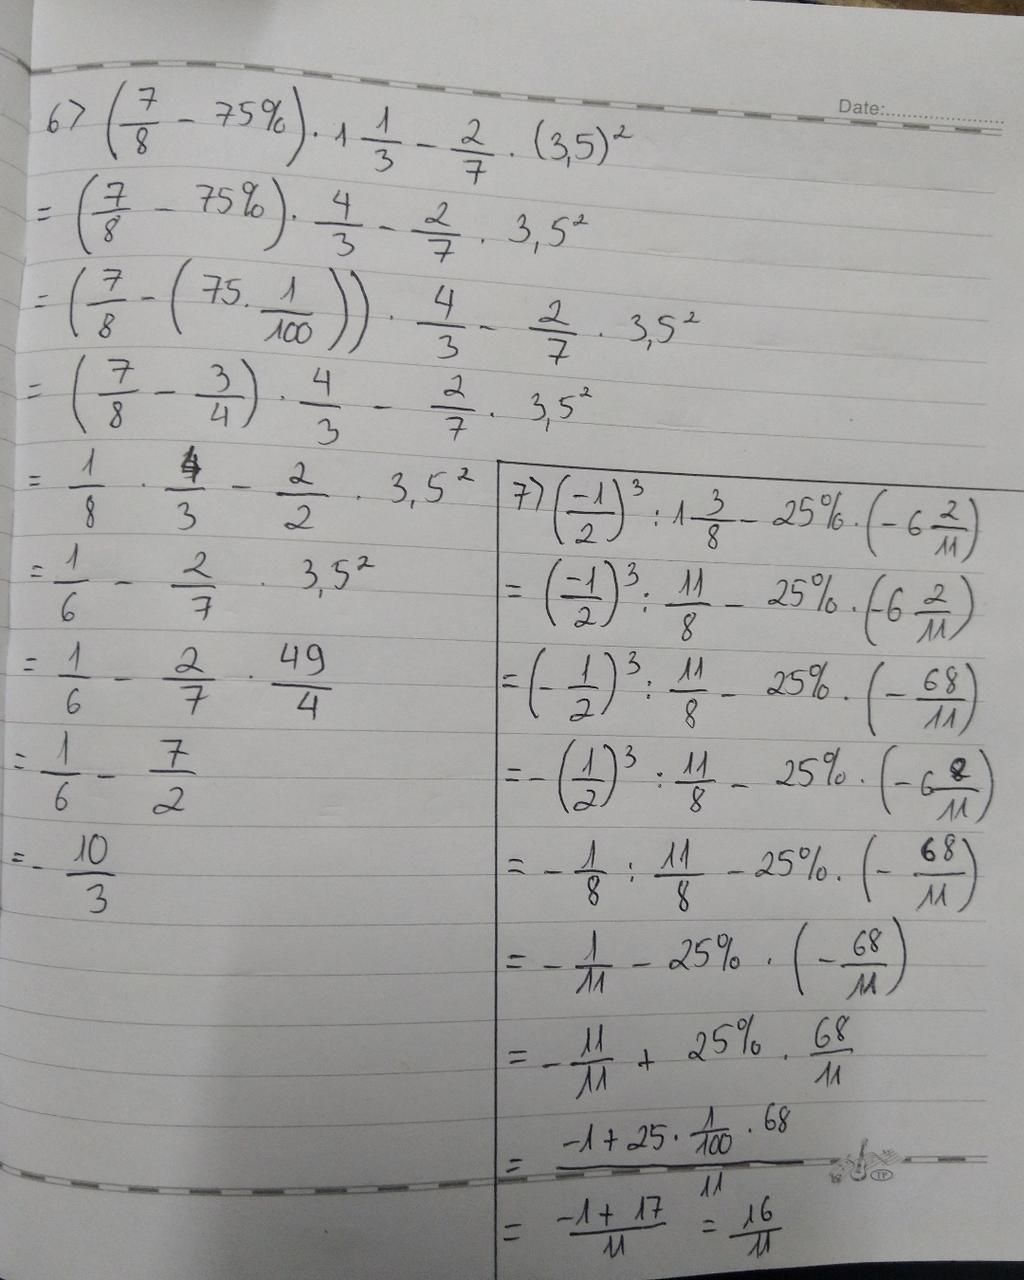 Date:
6) (7/8 - 75%) . 1 1/3 - 2/7 . (3,5)²
= (7/8 - 75%) . 4/3 - 2/7 . 3,5²
= (7/8 - (75 . 1/100)) . 4/3 - 2/7 . 3,5²
= (7/8 - 3/4) . 4/3 - 2/7 . 3,5²
= 1/8 . 4/3 - 2/2 . 3,5²
= 1/6 - 2/7 . 3,5²
= 1/6 - 2/7 . 49/4
= 1/6 - 7/2
= - 10/3
7) (-1/2)³ : 1 3/8 - 25% . (-6 2/11)
= (-1/2)³ : 11/8 - 25% . (-6 2/11)
= (- 1/2)³ : 11/8 - 25% . (- 68/11)
= - (1/2)³ : 11/8 - 25% . (- 68/11)
= - 1/8 : 11/8 - 25% . (- 68/11)
= - 1/11 - 25% . (- 68/11)
= - 11/11 + 25% . 68/11
= (-1 + 25 . 1/100 . 68)/11
= (-1 + 17)/11 = 16/11
TP